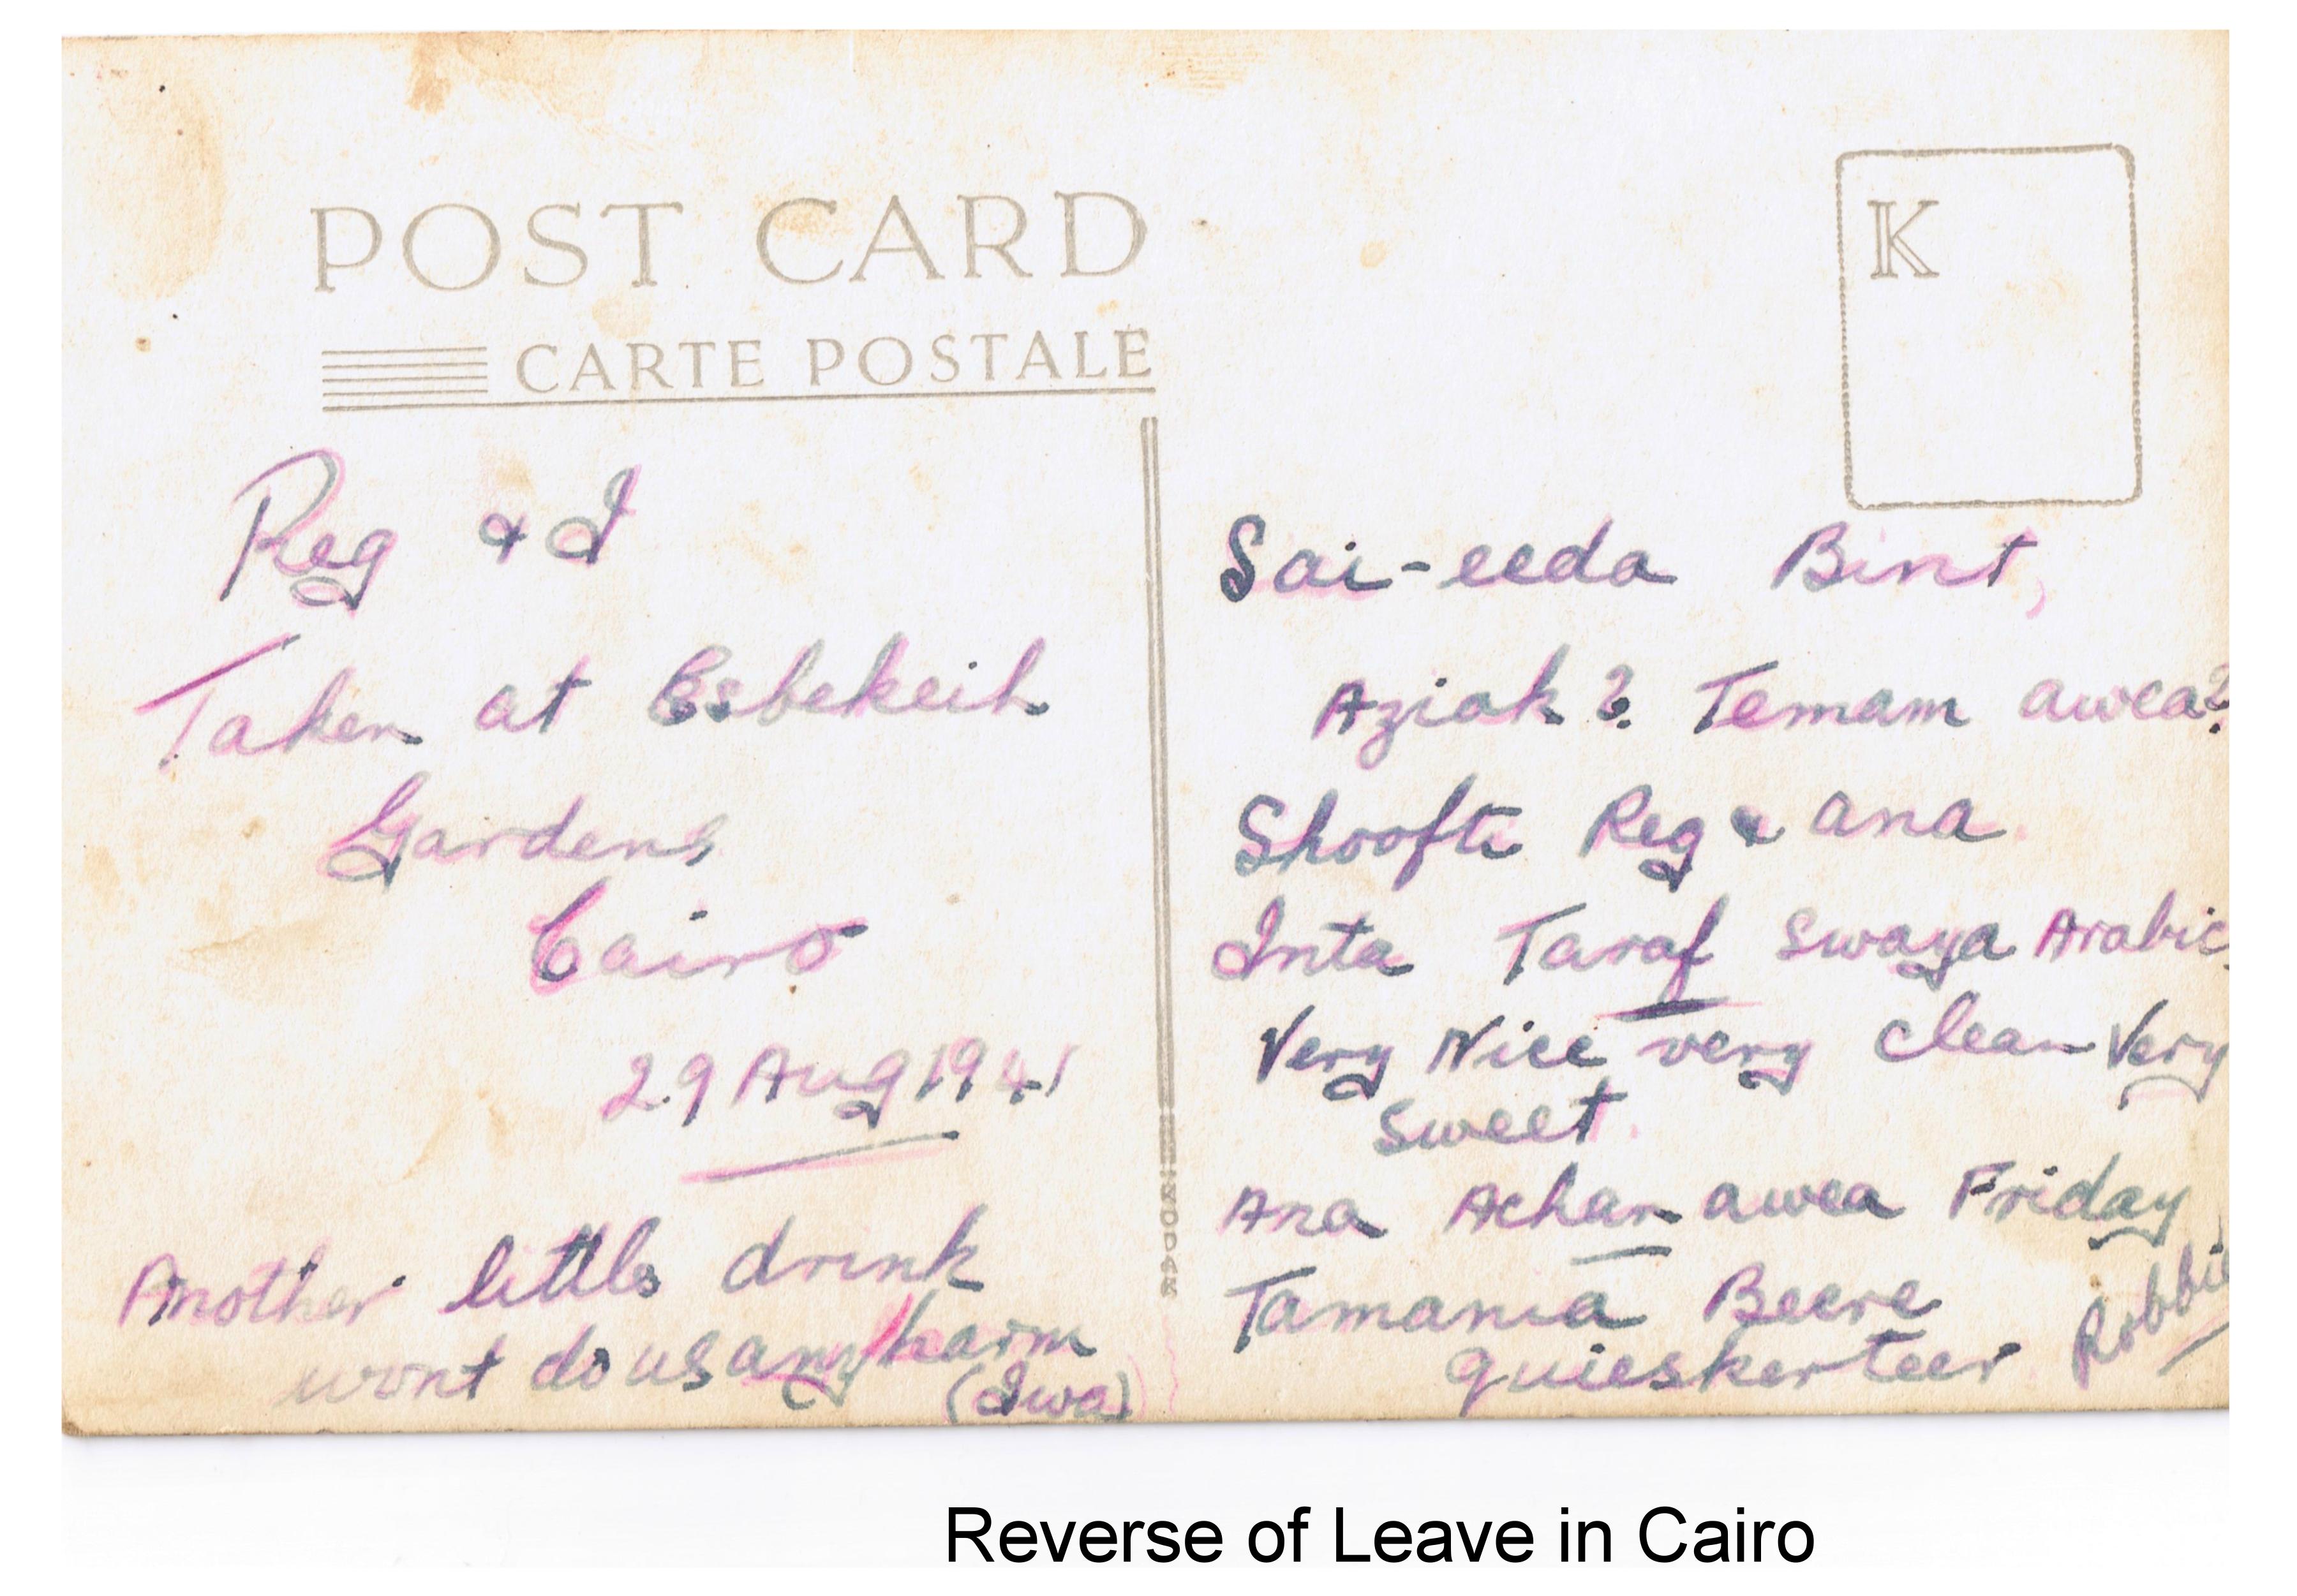 POST CARD
CARTE POSTALE
K
Reg & I
Taken at Esbekeih
Gardens
Cairo
29 Aug 1941
Another little drink
wont do us any harm
(Iwa)
KODAK
Sai-eeda Bint,
Aziak? Temam awea?
Shoofti Reg & ana.
Inta Taraf swaya Arabic.
Very Nice very clean Very
sweet.
Ana Achan awea Friday
Tamania Beere
quieskerteer
Robbie
Reverse of Leave in Cairo